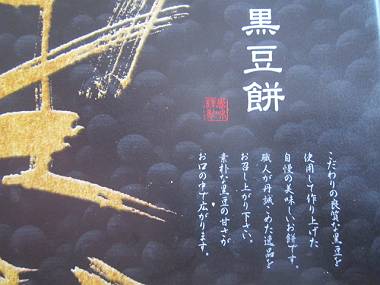 黒豆餅
こだわりの良質な黒豆を
使用して作り上げた
自慢の美味しいお餅です。
職人が丹誠こめた逸品を
お召し上がり下さい。
素朴な黒豆の甘さが
お口の中で広がります。